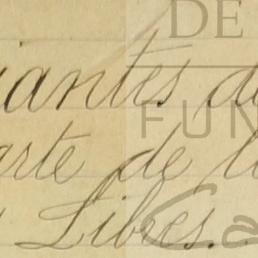 DE
antes de
FUN
arte de l
Libres.
Ca